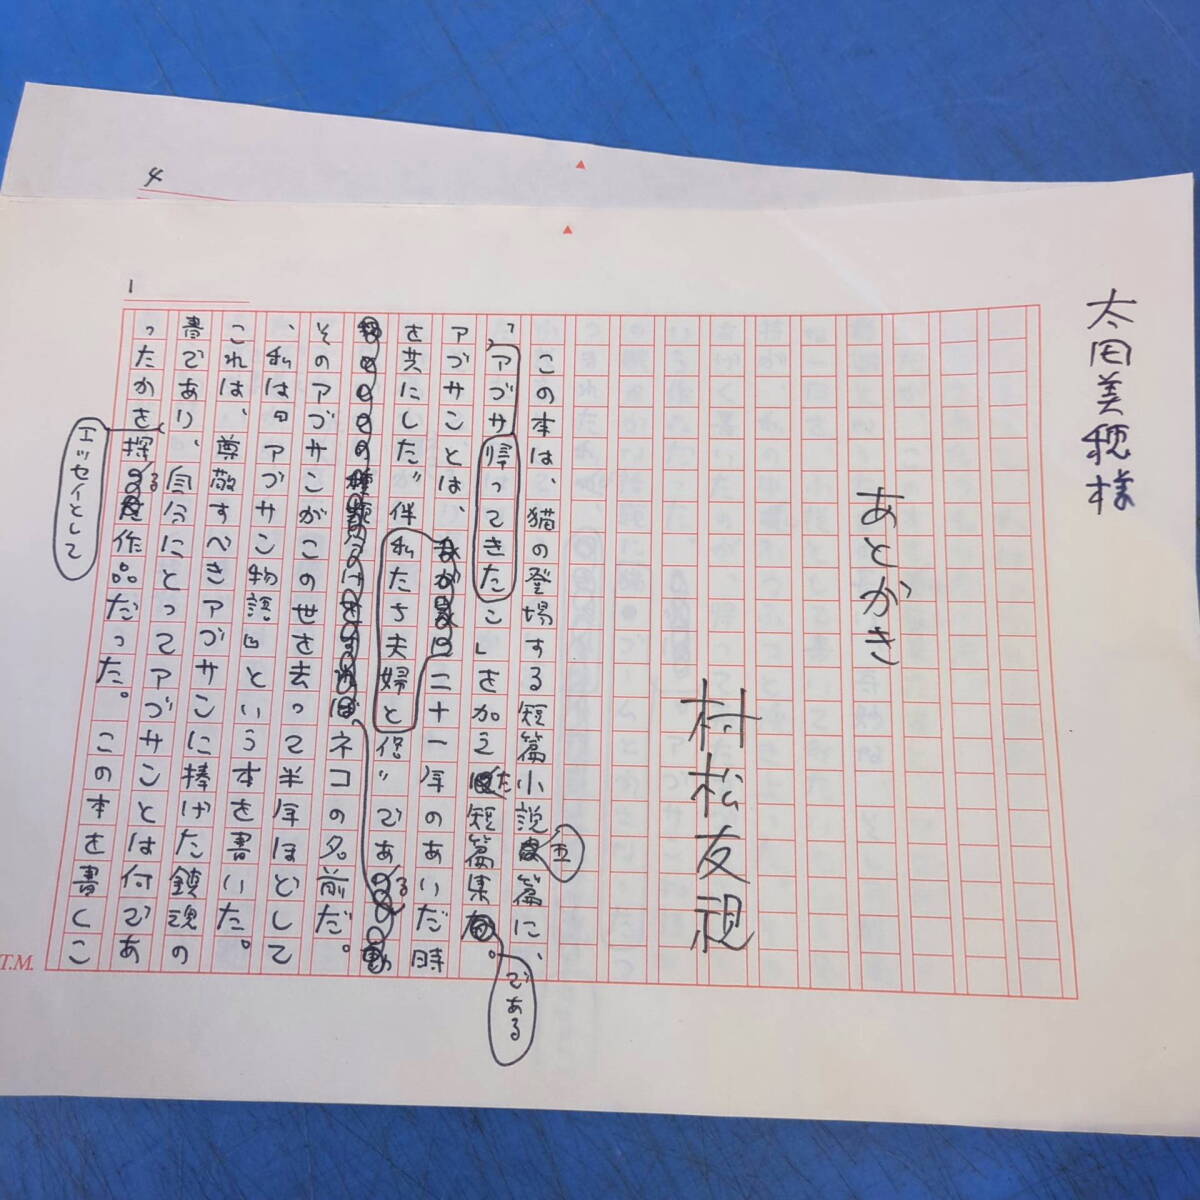 太田美穂様
あとがき
村松友視
この本は、猫の登場する短篇小説五篇に、
「アブサン帰ってきたこ」を加えた短篇集である。
アブサンとは、二十一年のあいだ時
を共にした"私たち夫婦と伴侶"である
ネコの名前だ。
そのアブサンがこの世を去って半年ほどして
、私は『アブサン物語』という本を書いた。
これは、尊敬すべきアブサンに捧げた鎮魂の
書であり、自分にとってアブサンとは何であ
ったかをエッセイとして探る作品だった。この本を書くこ
1
4
T.M.